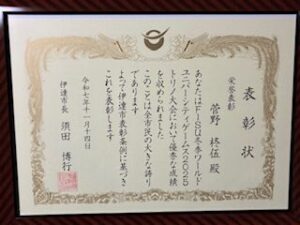 表彰状
栄誉表彰
菅野 柊伍 殿
あなたはFISU冬季ワールド
ユニバーシティゲームズ2025
トリノ大会において優秀な成績
を収められました
このことは全市民の大きな誇り
であります
よって伊達市表彰条例に基づき
これを表彰します
令和七年十一月十四日
伊達市長 須田 博行